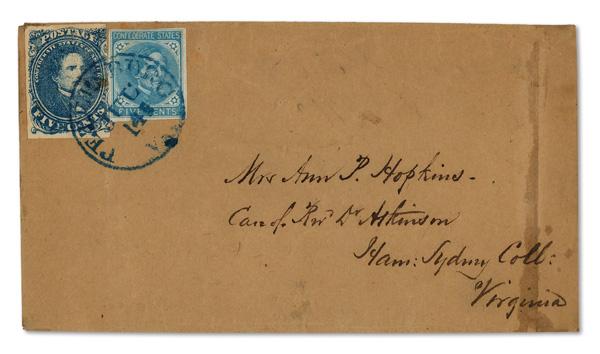 POSTAGE
CONFEDERATE STATES
FIVE CENTS
CONFEDERATE STATES
FIVE CENTS
14
Mrs Ann P. Hopkins -
Care of Revd Dr Atkinson
Ham: Sydny Coll:
Virginia